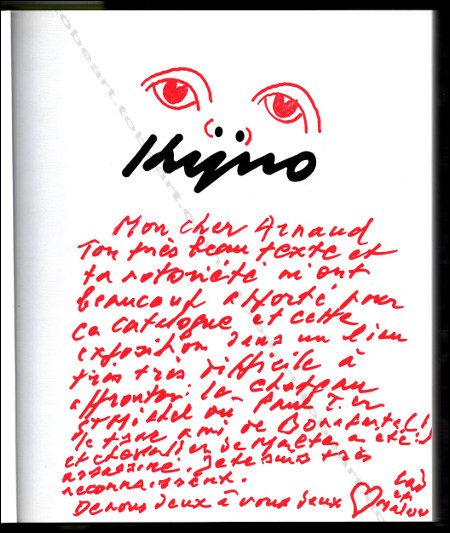 Kijno
Mon cher Arnaud
Ton très beau texte et
ta notoriété m'ont
beaucoup apporté pour
ce catalogue et cette
exposition dans un lieu
très très difficile à
affronter: le château
St Michel où Paul I er
de ami de Bonaparte (!)
et chevalier de Malte a été
assassiné. Je te suis très
reconnaissant.
De nous deux à vous deux
Lad
et
Malou